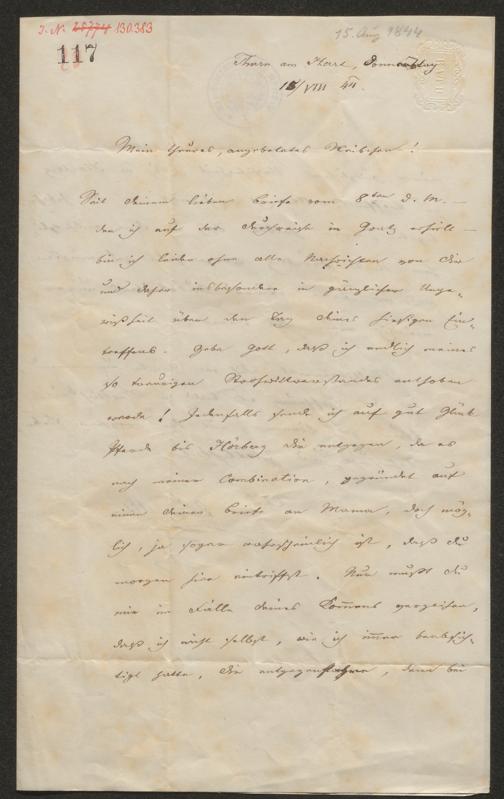 J. N. 25774 130.383
117
15. Aug 1844
Thurn am Hart, Donnerstag
15/VIII 44.
Mein theures, angebetetes Weibchen!
Seit deinem lieben Briefe vom 8ten d. M. –
den ich auf der Durchreise in Gonz erhielt –
bin ich leider ohne alle Nachrichten von dir
und daher insbesondere in gänzlicher Unge-
wißheit über den Tag deines hiesigen Ein-
treffens. Gebe Gott, daß ich endlich meines
so traurigen Strohwittwerstandes enthoben
werde! Jedenfalls sende ich auf gut Glück
Pferde bis Hörberg dir entgegen, da es
nach meiner Combination, gegründet auf
einen deiner Briefe an Mama, doch mög-
lich, ja sogar wahrscheinlich ist, daß du
morgen hier eintriffst. Nur mußt du
mir im Falle deines Kom̅ens verzeihen,
daß ich nicht selbst, wie ich im̅er beabsich-
tigt hatte, dir entgegenfahre, denn bei